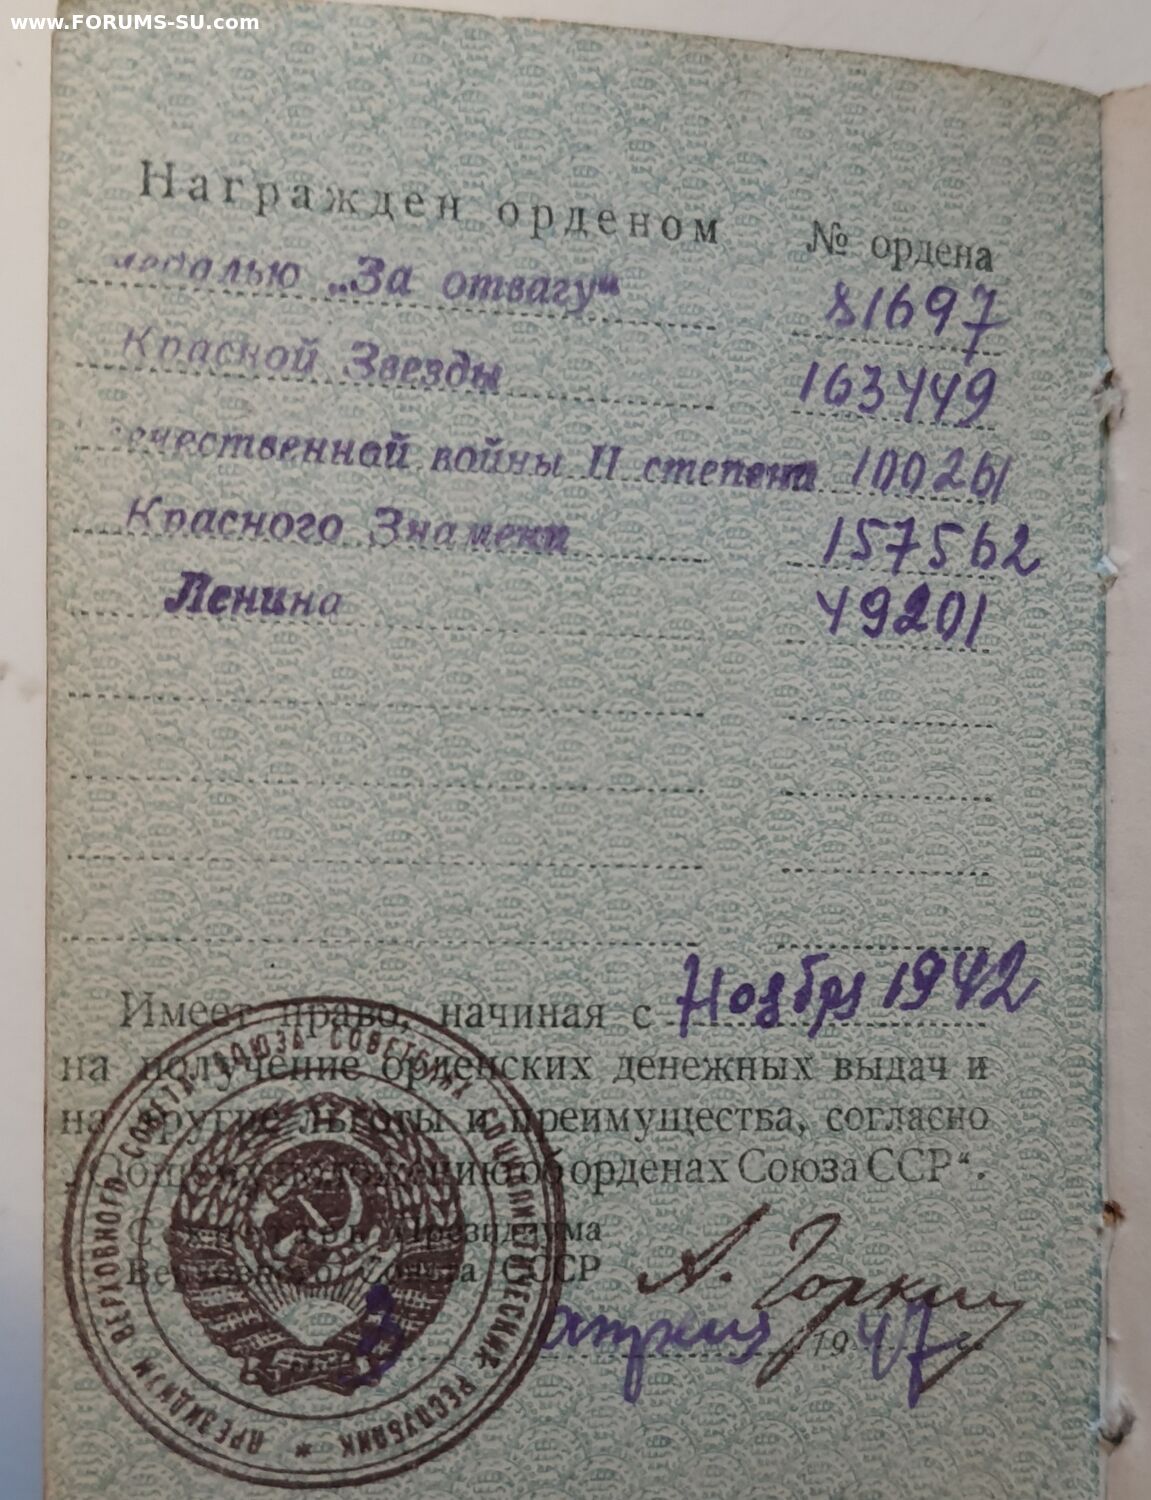 www.FORUMS-SU.com
Награжден орденом № ордена
медалью „За отвагу“ 81697
Красной Звезды 163449
Отечественной войны II степени 100261
Красного Знамени 157562
Ленина 49201
Имеет право, начиная с Ноября 1942
на получение орденских денежных выдач и
на другие льготы и преимущества, согласно
„Общему положению об орденах Союза ССР“.
Секретарь Президиума
Верховного Совета СССР А. Горкин
3 апреля 1947 г.
ПРЕЗИДИУМ ВЕРХОВНОГО СОВЕТА СОЮЗА СОВЕТСКИХ СОЦИАЛИСТИЧЕСКИХ РЕСПУБЛИК *